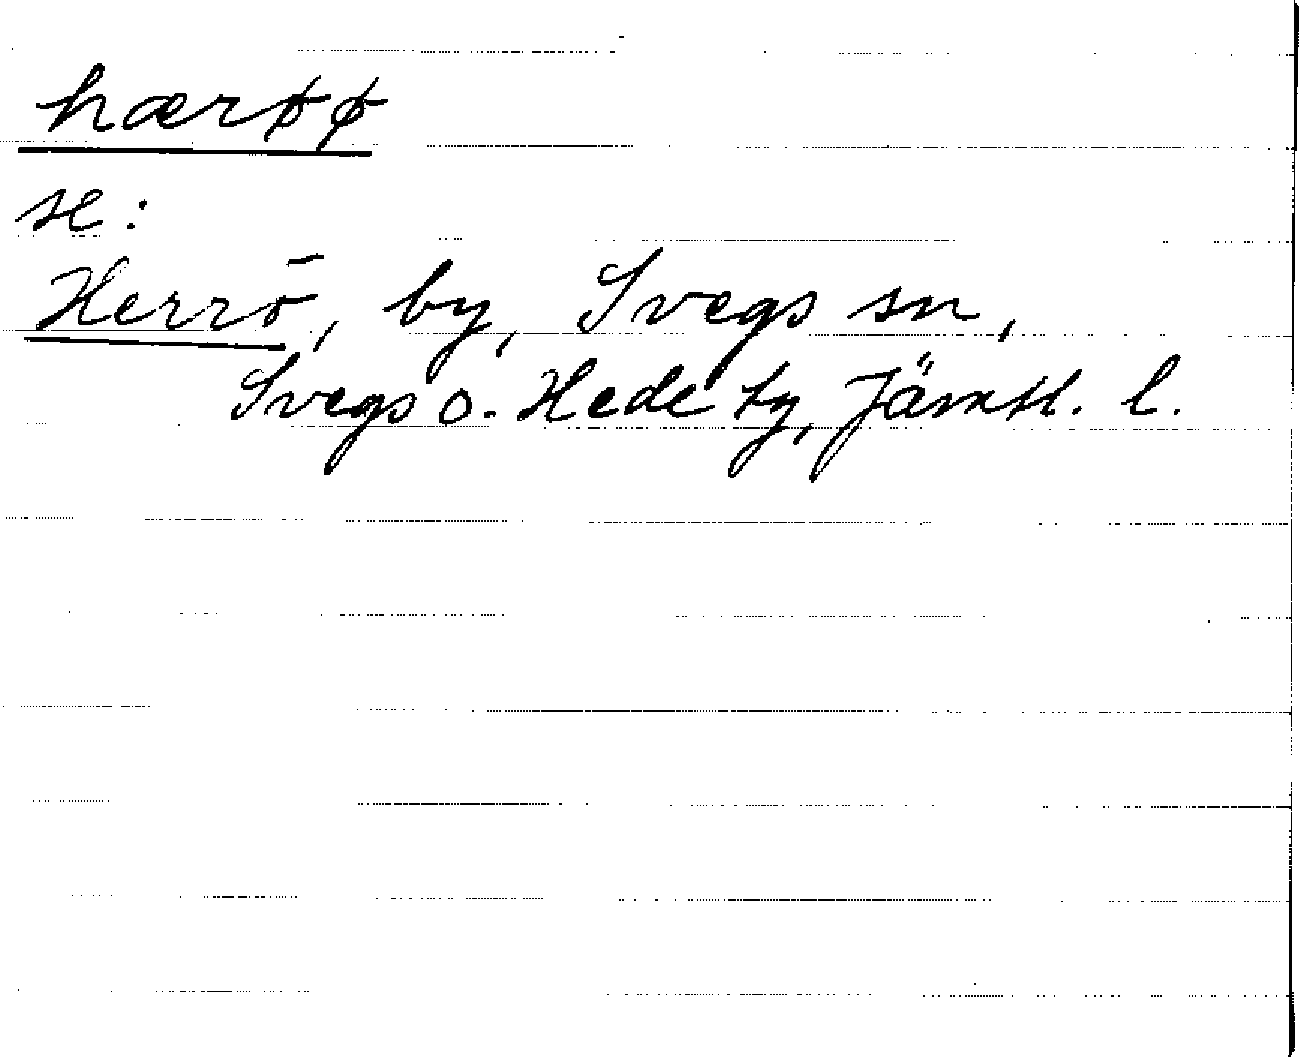 hærøø
se:
Herrö, by, Svegs sn,
Svegs o. Hede tg, Jämtl. l.